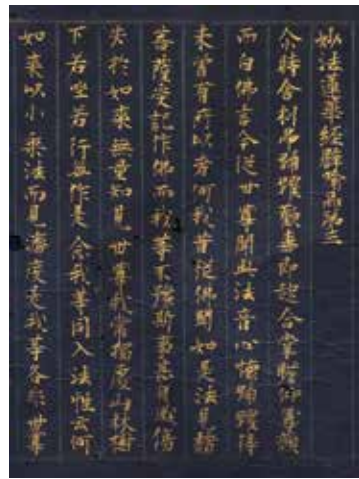 妙法蓮華經譬喻品第三
尒時舍利弗踊躍歡喜即起合掌瞻仰尊顏
而白佛言今從世尊聞此法音心懷踊躍得
未曾有所以者何我昔從佛聞如是法見諸
菩薩受記作佛而我等不預斯事甚自感傷
失於如來無量知見世尊我常獨處山林樹
下若坐若行每作是念我等同入法性云何
如來以小乘法而見濟度是我等咎非世尊